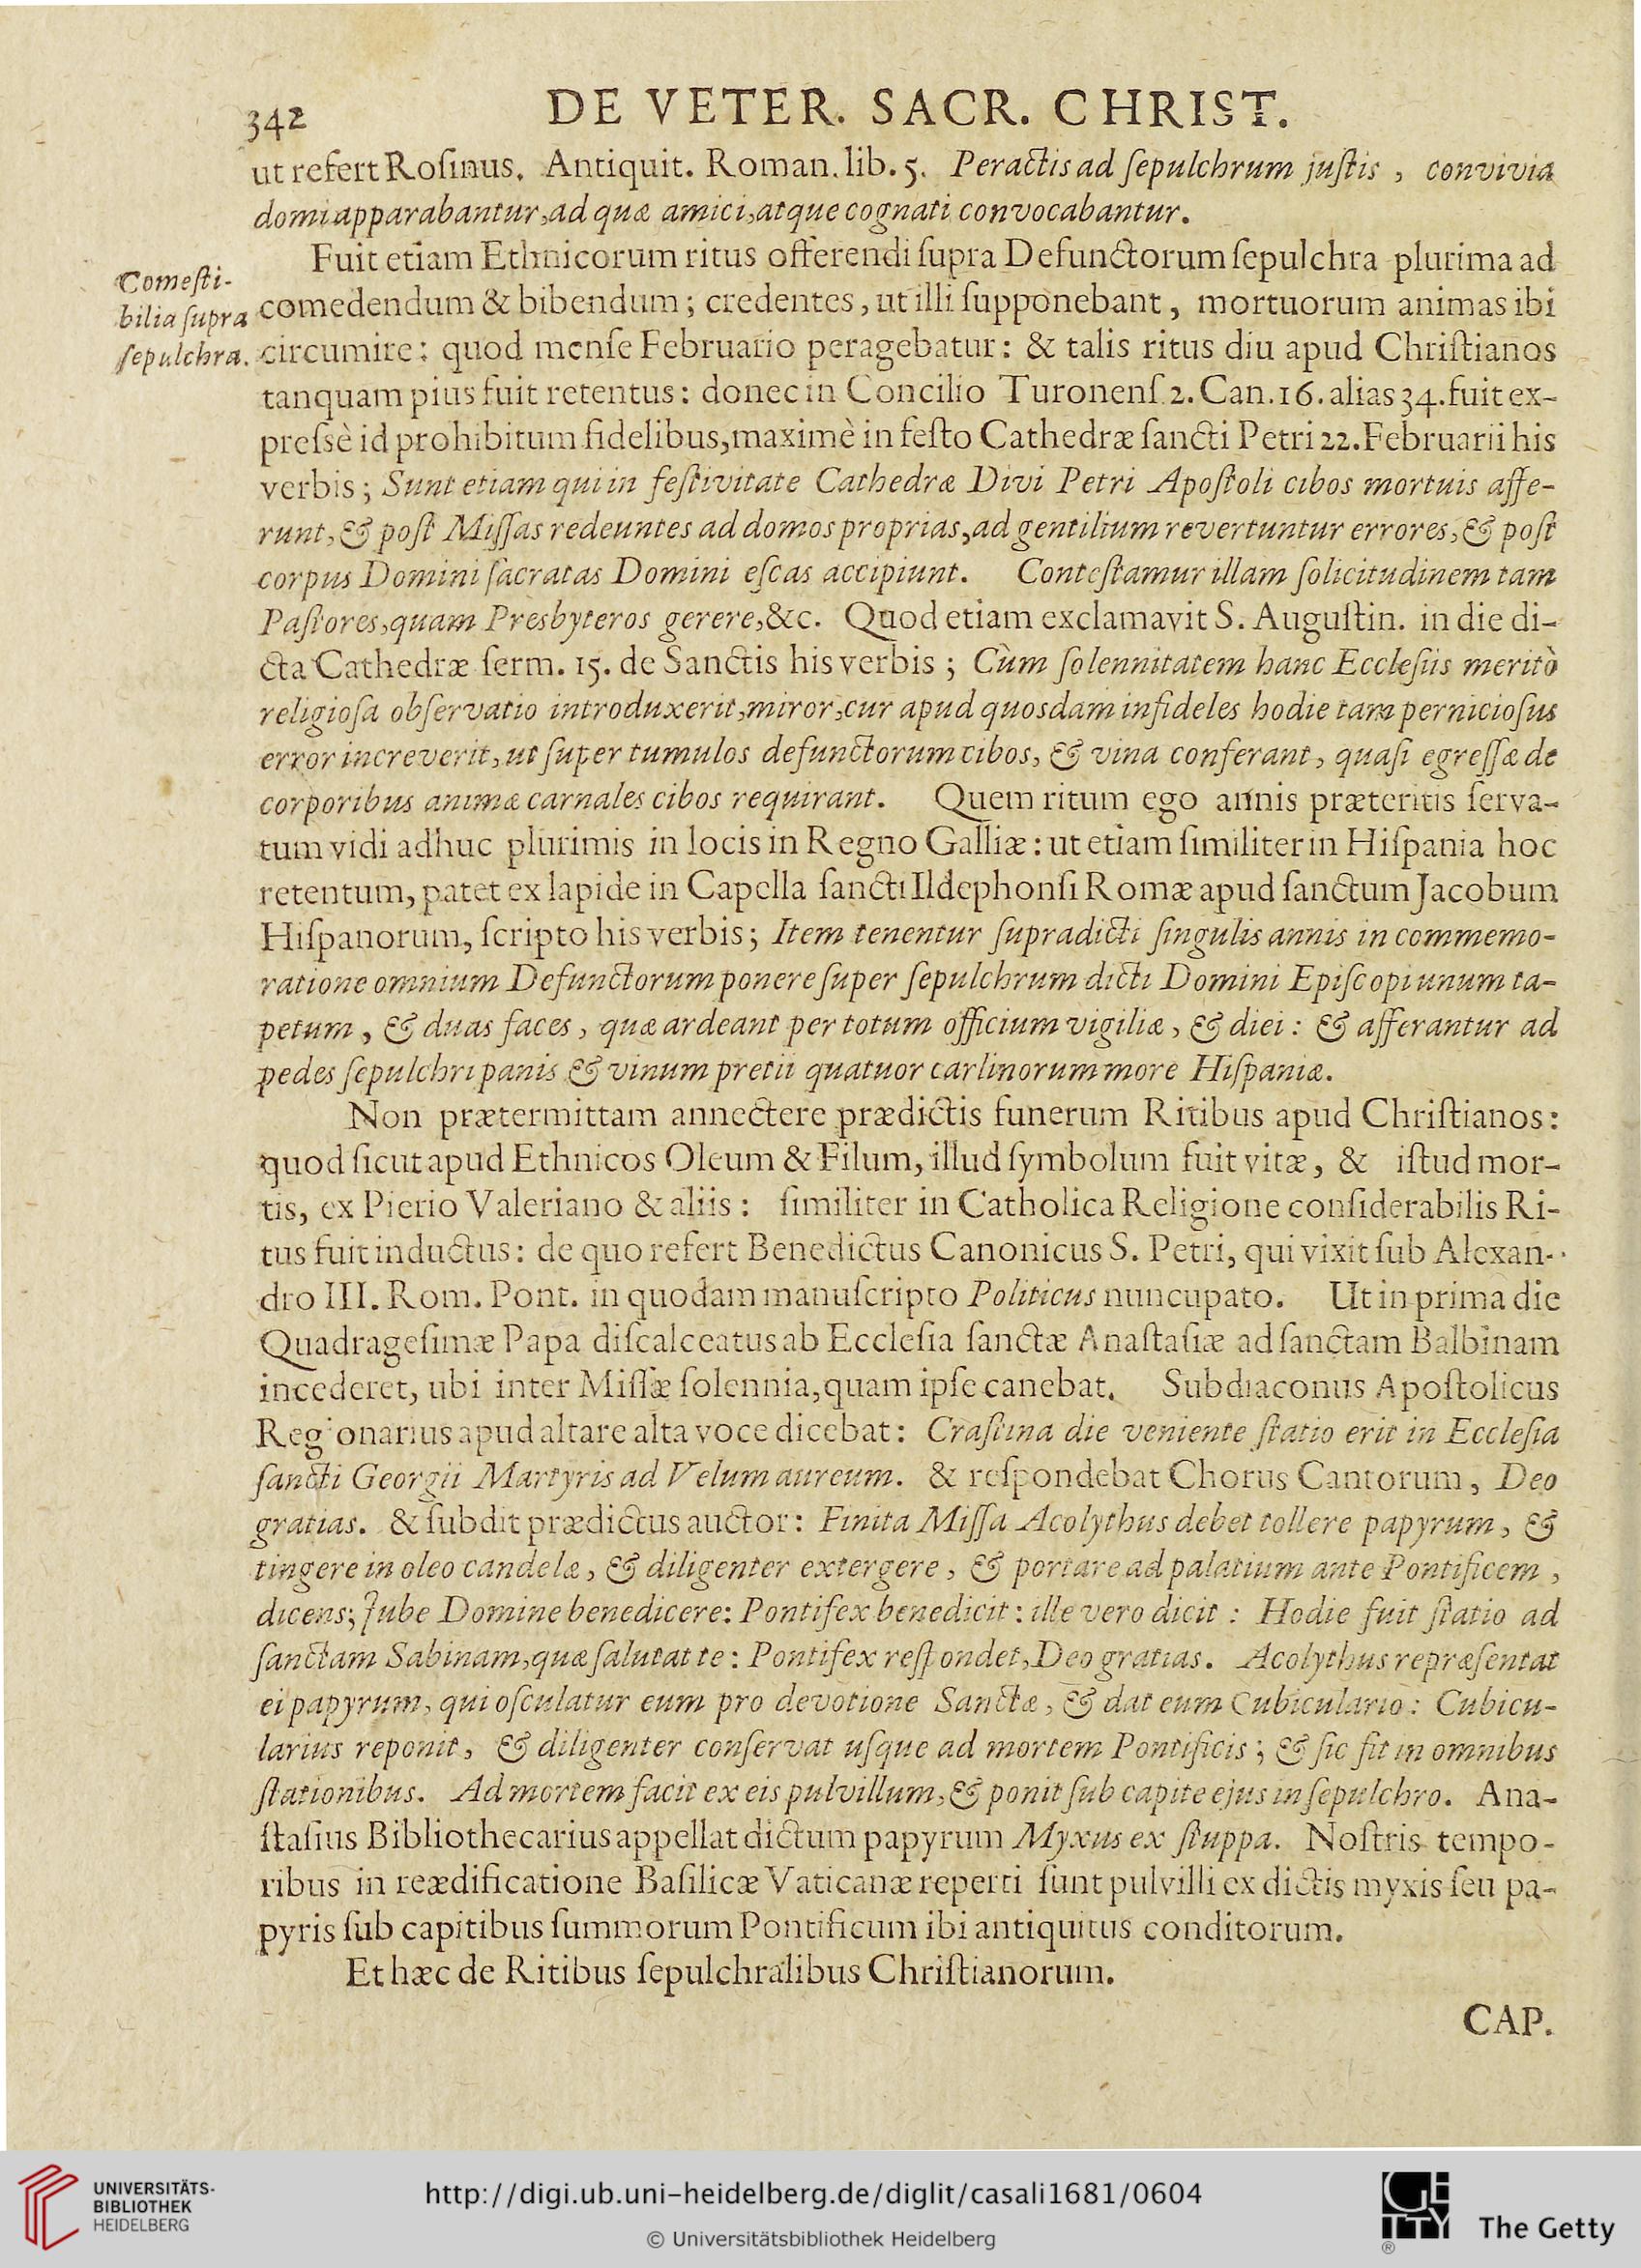 342 DE VETER. SACR. CHRIST.
ut refert Roſinus. Antiquit. Roman. lib. 5. Peractis ad ſepulchrum juſtis , convivia
domi apparabantur, ad quæ amici, atque cognati convocabantur.
Fuit etiam Ethnicorum ritus offerendi ſupra Defunctorum ſepulchra plurima ad
Comeſti-
bilia ſupra
ſepulchra.
comedendum & bibendum ; credentes, ut illi ſupponebant , mortuorum animas ibi
circumire : quod menſe Februario peragebatur : & talis ritus diu apud Chriſtianos
tanquam pius fuit retentus : donec in Concilio Turonenſ. 2. Can. 16. alias 34. fuit ex-
preſsè id prohibitum fidelibus, maximè in feſto Cathedræ ſancti Petri 22. Februarii his
verbis ; Sunt etiam qui in feſtivitate Cathedræ Divi Petri Apoſtoli cibos mortuis affe-
runt, & poſt Miſſas redeuntes ad domos proprias, ad gentilium revertuntur errores, & poſt
corpus Domini ſacratas Domini eſcas accipiunt. Conteſtamur illam ſolicitudinem tam
Paſtores, quam Presbyteros gerere, &c. Quod etiam exclamavit S. Auguſtin. in die di-
cta Cathedræ ſerm. 15. de Sanctis his verbis ; Cùm ſolennitatem hanc Eccleſiis meritò
religioſa obſervatio introduxerit, miror, cur apud quosdam infideles hodie tam pernicioſus
error increverit, ut ſuper tumulos defunctorum cibos, & vina conferant , quaſi egreſſæ de
corporibus animæ carnales cibos requirant. Quem ritum ego annis præteritis ſerva-
tum vidi adhuc plurimis in locis in Regno Galliæ : ut etiam ſimiliter in Hiſpania hoc
retentum, patet ex lapide in Capella ſancti Ildephonſi Romæ apud ſanctum Jacobum
Hiſpanorum, ſcripto his verbis ; Item tenentur ſupradicti ſingulis annis in commemo-
ratione omnium Defunctorum ponere ſuper ſepulchrum dicti Domini Epiſcopi unum ta-
petum , & duas faces , quæ ardeant per totum officium vigiliæ , & diei : & afferantur ad
pedes ſepulchri panis & vinum pretii quatuor carlinorum more Hiſpaniæ.
Non prætermittam annectere prædictis funerum Ritibus apud Chriſtianos :
quod ſicut apud Ethnicos Oleum & Filum, illud ſymbolum fuit vitæ , & iſtud mor-
tis, ex Pierio Valeriano & aliis : ſimiliter in Catholica Religione conſiderabilis Ri-
tus fuit inductus : de quo refert Benedictus Canonicus S. Petri, qui vixit ſub Alexan-
dro III. Rom. Pont. in quodam manuſcripto Politicus nuncupato. Ut in prima die
Quadrageſimæ Papa diſcalceatus ab Eccleſia ſanctæ Anaſtaſiæ ad ſanctam Balbinam
incederet, ubi inter Miſſæ ſolennia, quam ipſe canebat. Subdiaconus Apoſtolicus
Regionarius apud altare alta voce dicebat : Craſtina die veniente ſtatio erit in Eccleſia
ſancti Georgii Martyris ad Velum aureum. & reſpondebat Chorus Cantorum , Deo
gratias. & ſubdit prædictus auctor : Finita Miſſa Acolythus debet tollere papyrum , &
tingere in oleo candelæ , & diligenter extergere , & portare ad palatium ante Pontificem ,
dicens ; Jube Domine benedicere : Pontifex benedicit : ille vero dicit : Hodie fuit ſtatio ad
ſanctam Sabinam, quæ ſalutat te : Pontifex reſpondet, Deo gratias. Acolythus repræſentat
ei papyrum, qui oſculatur eum pro devotione Sanctæ , & dat eum Cubiculario : Cubicu-
larius reponit , & diligenter conſervat uſque ad mortem Pontificis ; & ſic fit in omnibus
ſtationibus. Ad mortem facit ex eis pulvillum, & ponit ſub capite ejus in ſepulchro. Ana-
ſtaſius Bibliothecarius appellat dictum papyrum Myxus ex ſtuppa. Noſtris tempo-
ribus in reædificatione Baſilicæ Vaticanæ reperti ſunt pulvilli ex dictis myxis ſeu pa-
pyris ſub capitibus ſummorum Pontificum ibi antiquitus conditorum.
Et hæc de Ritibus ſepulchralibus Chriſtianorum.
CAP.
UNIVERSITÄTS-
BIBLIOTHEK
HEIDELBERG
http://digi.ub.uni-heidelberg.de/diglit/casali1681/0604
© Universitätsbibliothek Heidelberg
The Getty